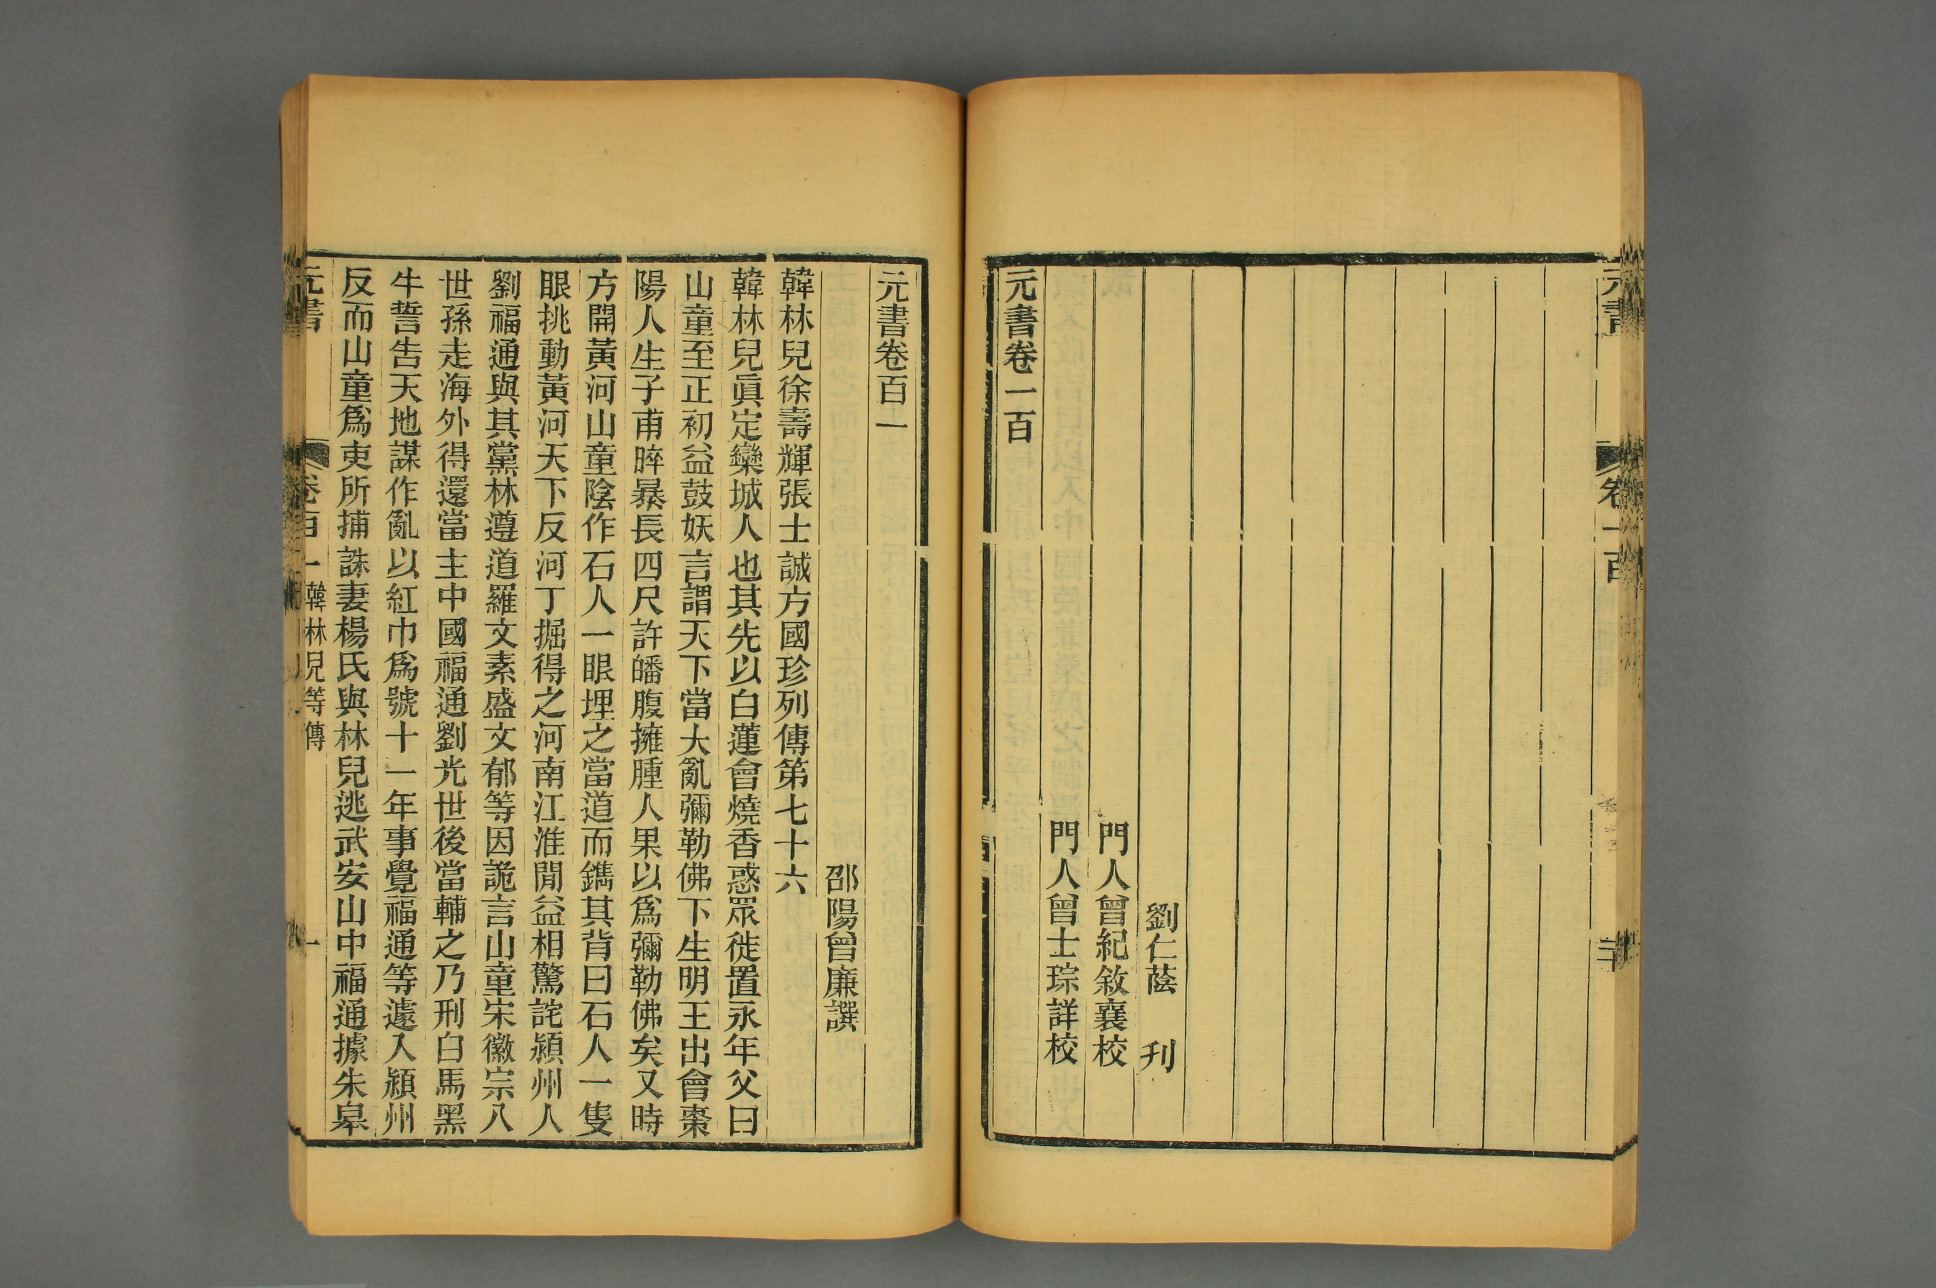 元書
卷一百
二十
劉仁蔭 刊
門人曾紀敘襄校
門人曾士琮詳校
元書卷一百
元書卷百一
邵陽曾廉譔
韓林兒徐壽輝張士誠方國珍列傳第七十六
韓林兒眞定欒城人也其先以白蓮會燒香惑眾徙置永年父曰
山童至正初益鼓妖言謂天下當大亂彌勒佛下生明王出會棗
陽人生子甫晬暴長四尺許皤腹擁腫人果以爲彌勒佛矣又時
方開黃河山童陰作石人一眼埋之當道而鐫其背曰石人一隻
眼挑動黃河天下反河丁掘得之河南江淮閒益相驚詫潁州人
劉福通與其黨林遵道羅文素盛文郁等因詭言山童宋徽宗八
世孫走海外得還當主中國福通劉光世後當輔之乃刑白馬黑
牛誓告天地謀作亂以紅巾爲號十一年事覺福通等遽入潁州
反而山童爲吏所捕誅妻楊氏與林兒逃武安山中福通據朱皋
元書
卷百一 韓林兒等傳
一